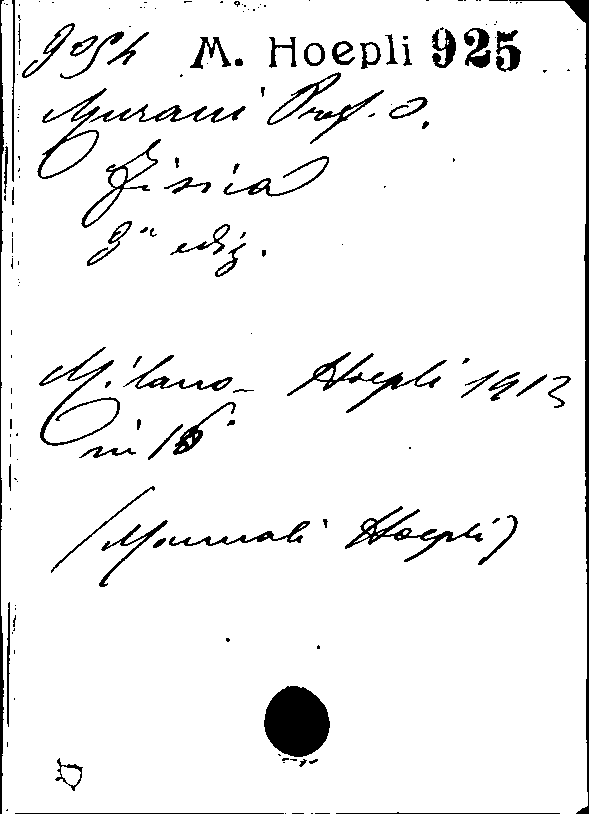 M. Hoepli 925
Murani Prof. O.
Fisica
9ª ediz.
Milano - Hoepli 1913
in 16°
(Manuali Hoepli)